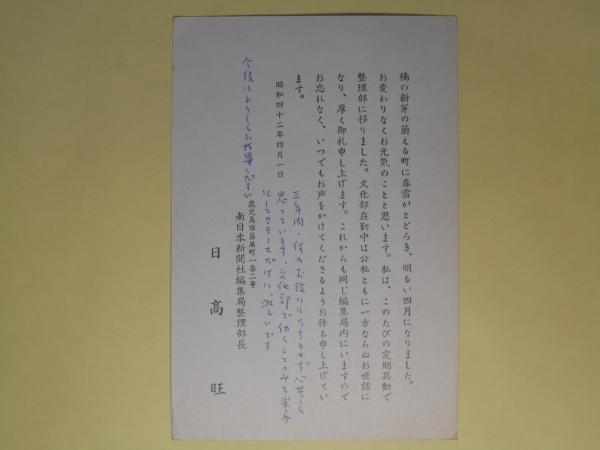 楠の新芽の萠える町に春雷がとどろき、明るい四月になりました。
お変わりなくお元気のことと思います。私は、このたびの定期異動で
整理部に移りました。文化部在勤中は公私ともに一方ならぬお世話に
なり、厚く御礼申し上げます。これからも同じ編集局内にいますので
お忘れなく、いつでもお声をかけてくださるようお待ち申し上げてい
ます。
昭和四十二年四月一日
三年間、何のお役にもたちうせず心苦しく
思っています。文化部で働くことのみを楽しみ
にしてきただけに、淋しいです
鹿児島市易居町一番二号
南日本新聞社編集局整理部長
日高旺
今後ともよろしくご指導ください